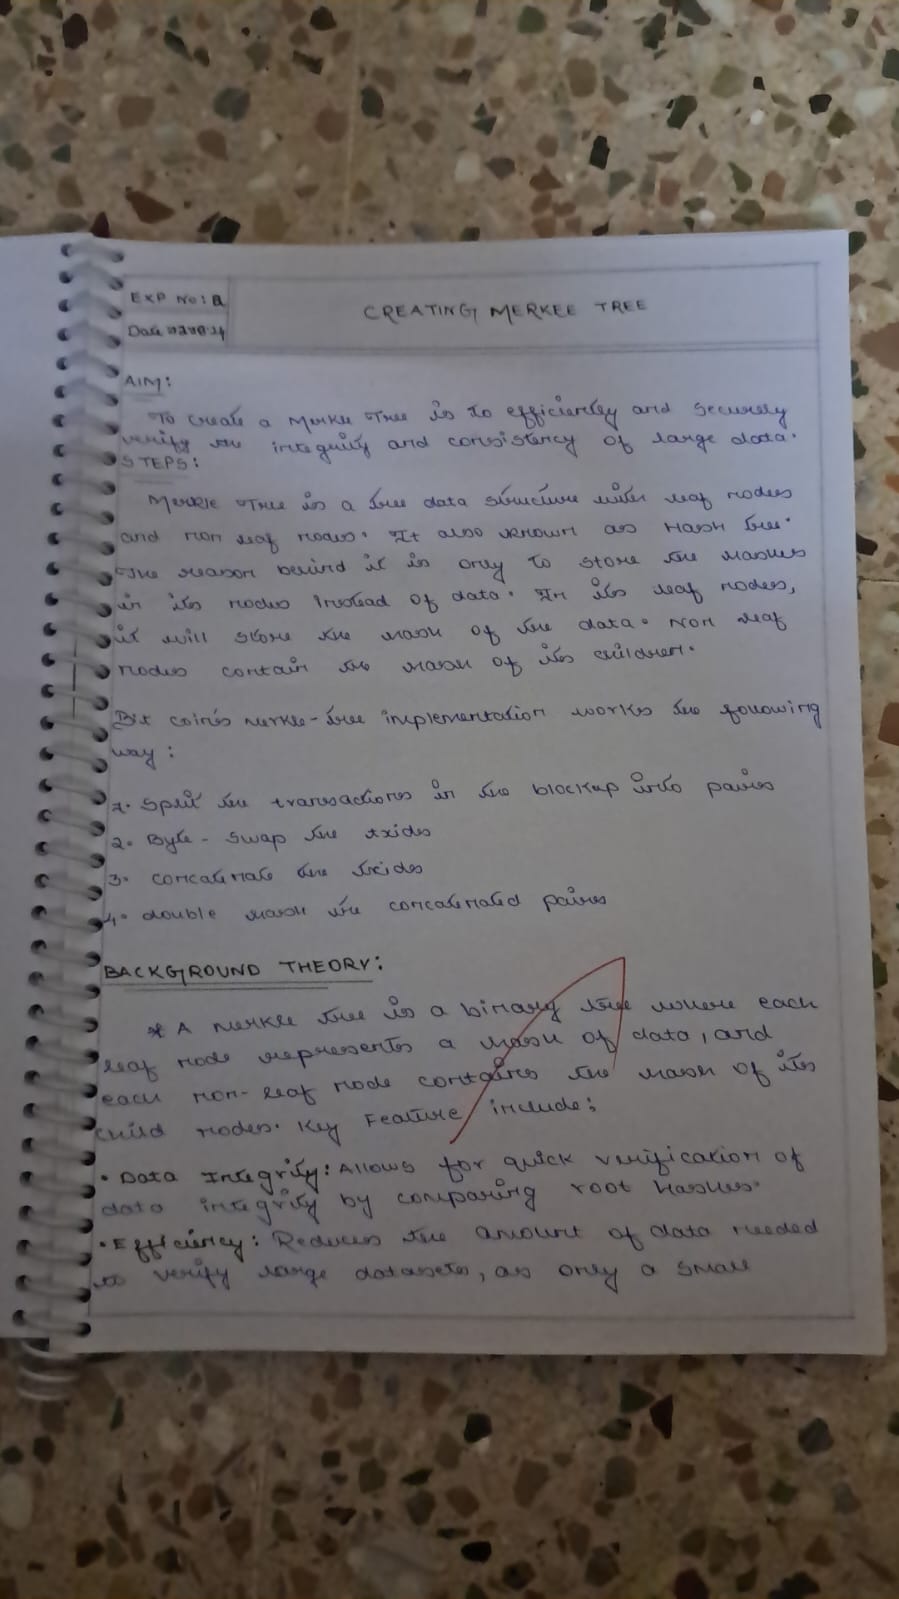 EXP NO:
Date
CREATING MERKEE TREE
AIM:
To create a Merkle Tree is to efficiently and securely
verify the integrity and consistency of large data.
STEPS:
Merkle Tree is a tree data structure with leaf nodes
and non leaf nodes. It also known as Hash tree.
The reason behind it is only to store the hashes
in its nodes instead of data. In its leaf nodes,
it will store the hash of the data. Non leaf
nodes contain the hash of its children.
Bit coin's merkle-tree implementation works the following
way:
1. Split the transactions in the blockup into pairs
2. Byte - swap the txides
3. concatenate the txides
4. double hash the concatenated pairs
BACKGROUND THEORY:
* A merkle tree is a binary tree where each
leaf node represents a hash of data, and
each non-leaf node contains the hash of its
child nodes. Key Feature include:
• Data Integrity: Allows for quick verification of
data integrity by comparing root hashes.
• Efficiency: Reduces the amount of data needed
to verify large datasets, as only a small